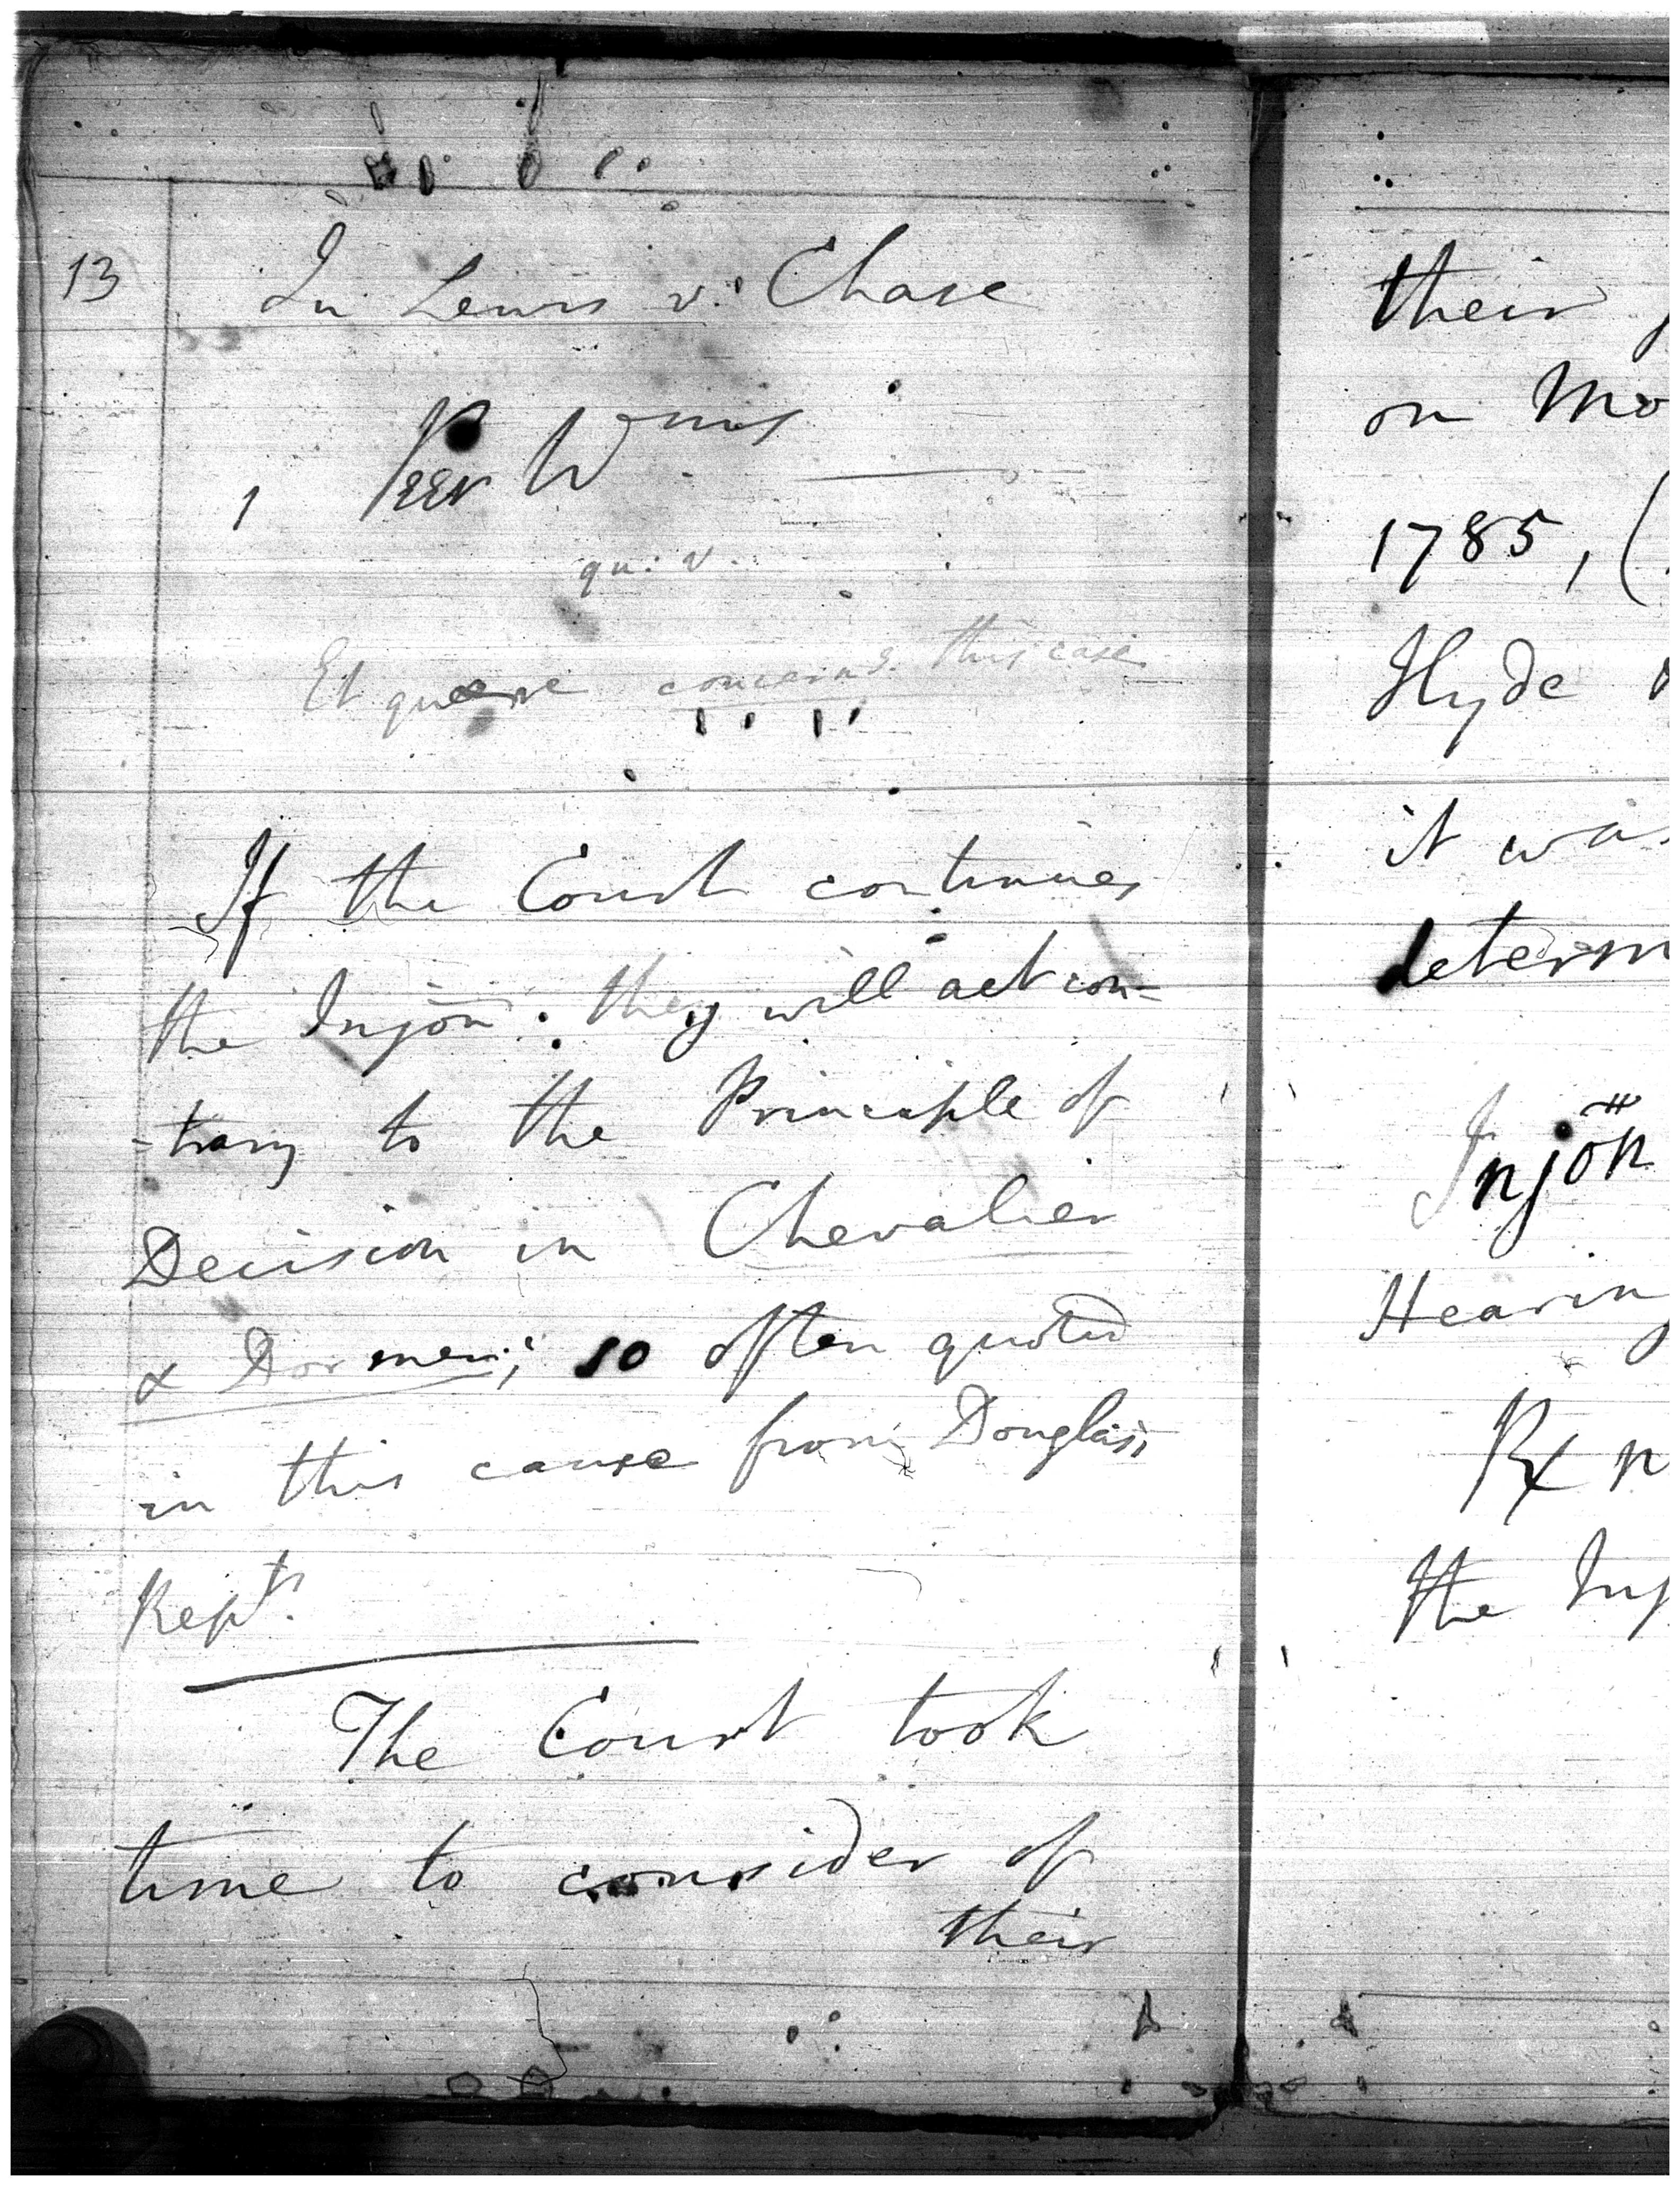 13
In Lewis v. Chase
1 Peer Wms
qu: v.
Et quere concerng. this case
If the Court continues
the Injōn: they will act con-
-trary to the Principle of
Decision in Chevalier
& Dormer; so often quoted
in this cause from Douglas's
Repts.
The Court took
time to consider of
their
their
on Mo
1785, (
Hyde
it was
determ
Injōn
Hearin
the Inj